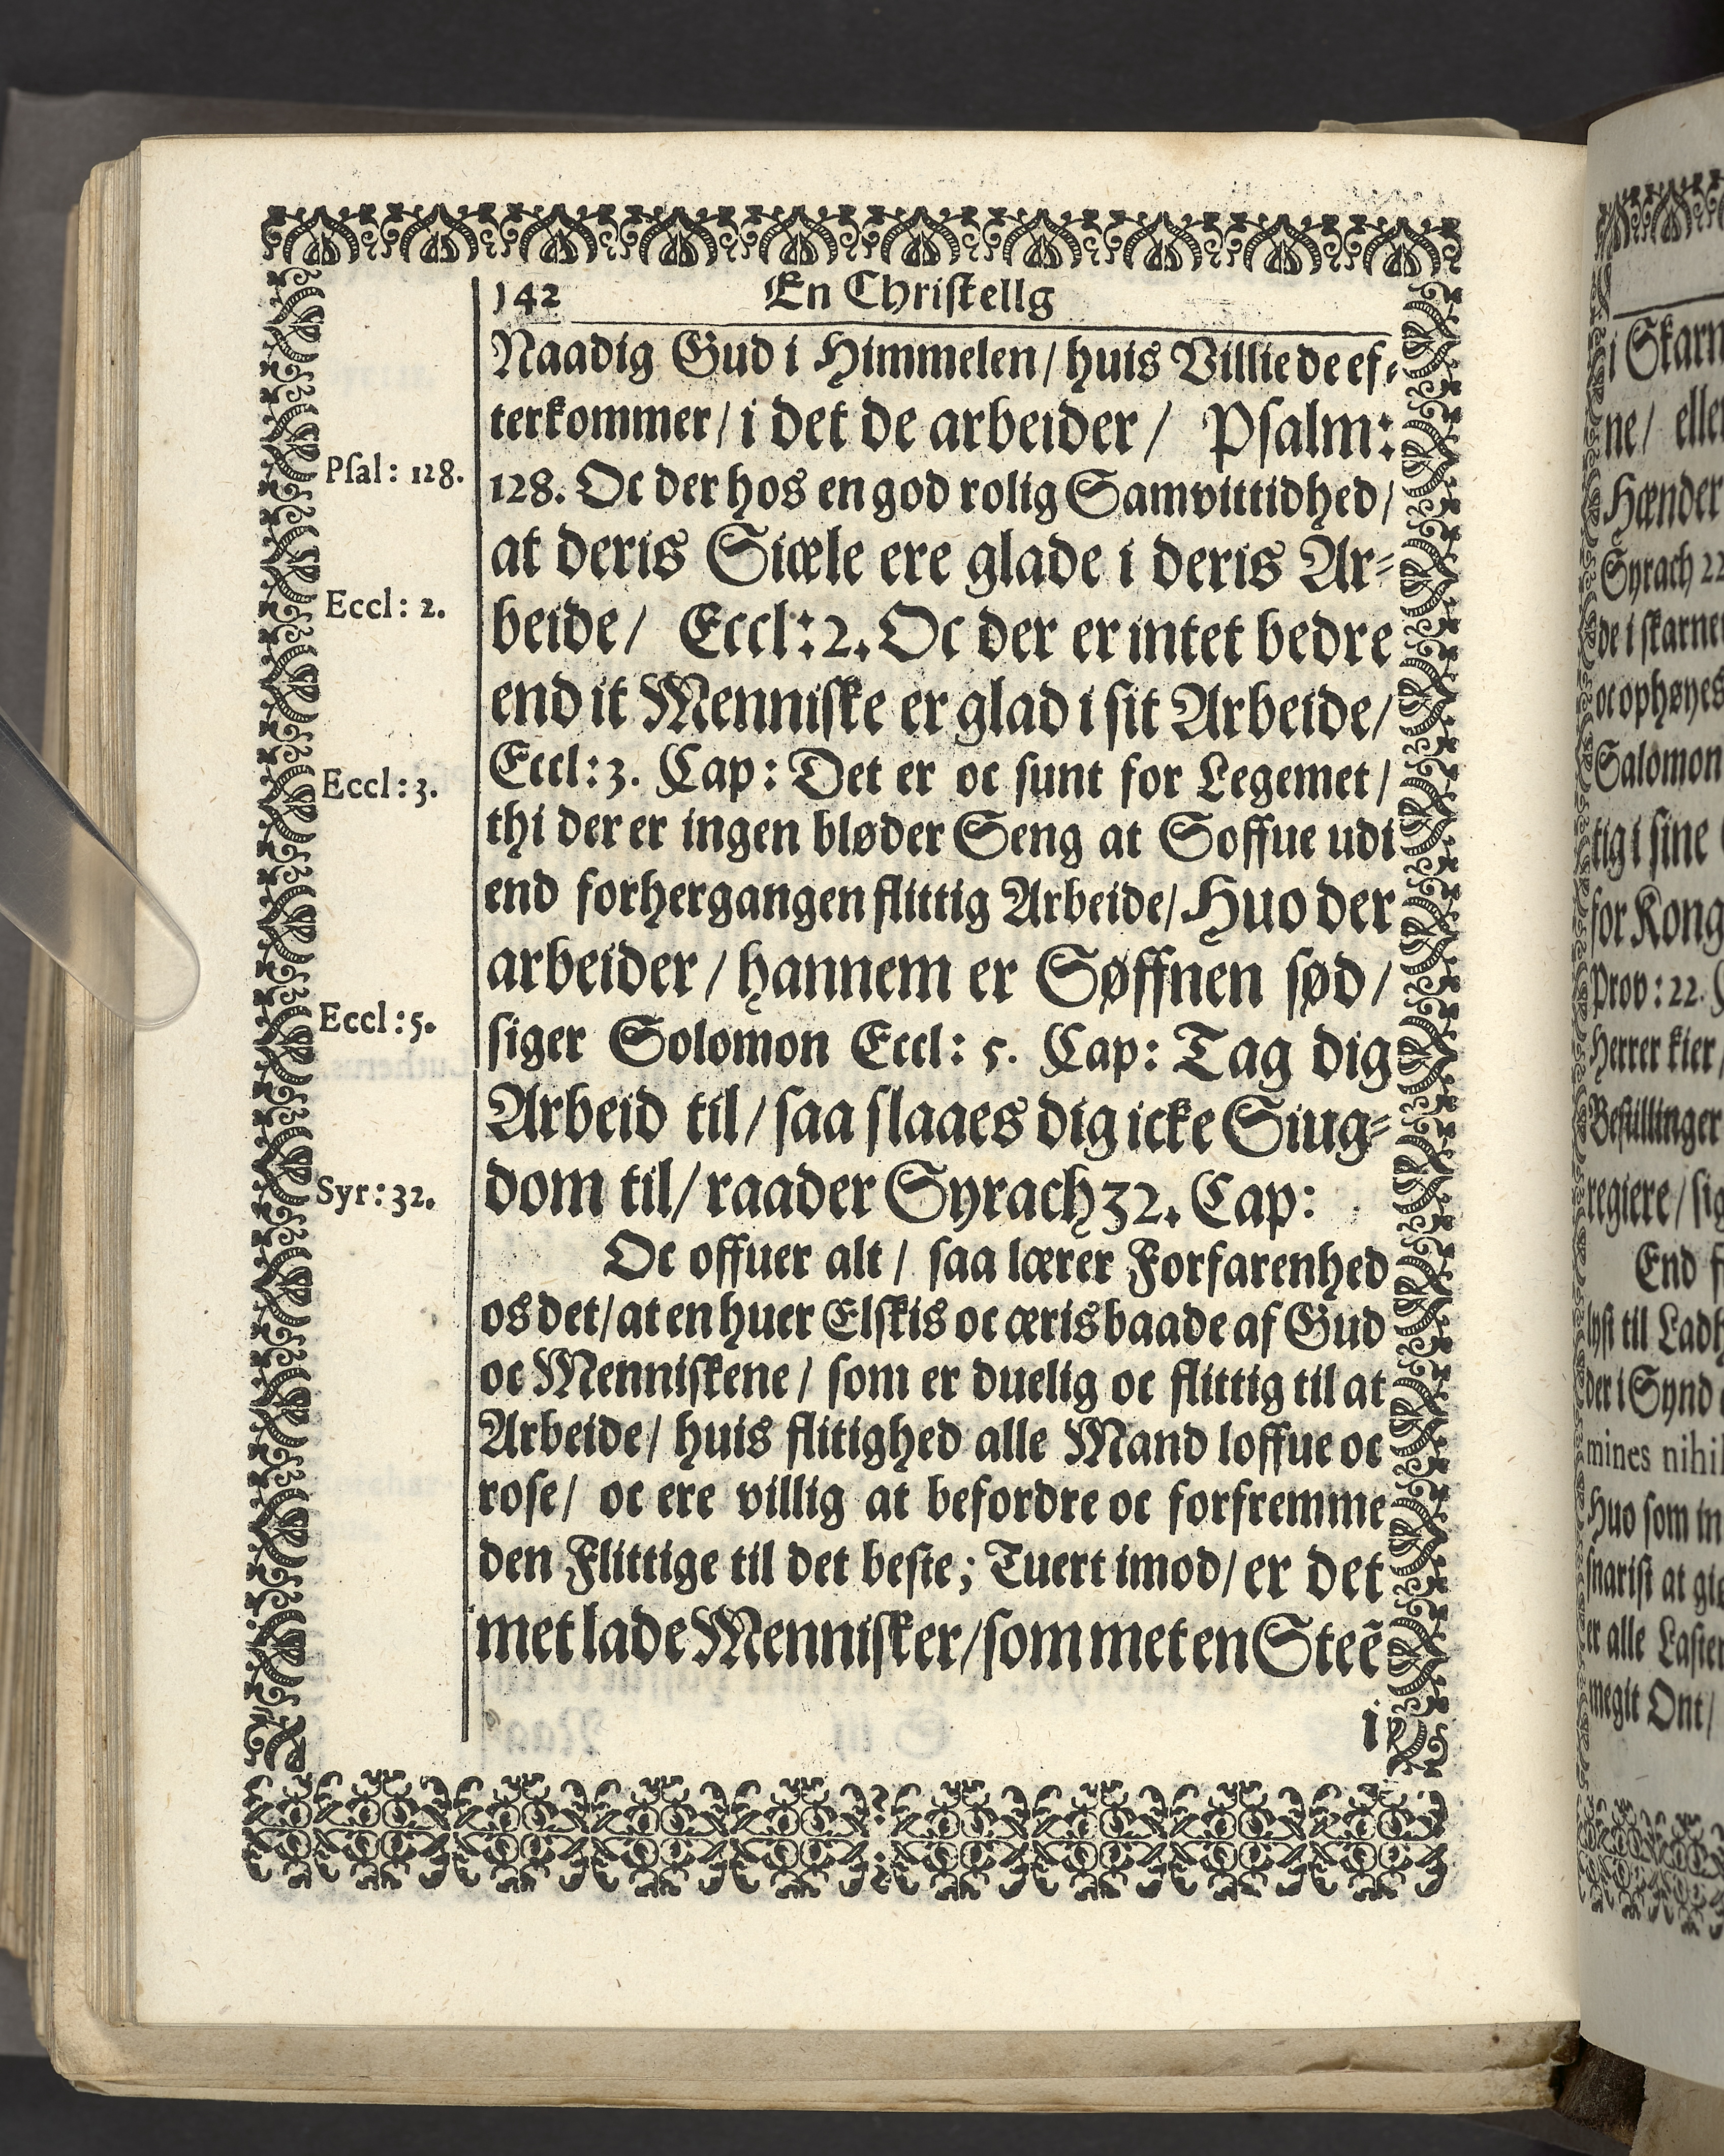 142 En Christellg
Naadig Gud i Himmelen/ huis Villie de ef-
terkommer/ i det de arbeider/ Psalm:
Psal: 128.
128. Oc der hos en god rolig Samvittidhed/
at deris Siæle ere glade i deris Ar-
Eccl: 2.
beide/ Eccl: 2. Oc der er intet bedre
end it Menniske er glad i sit Arbeide/
Eccl: 3.
Eccl: 3. Cap: Det er oc sunt for Legemet/
thi der er ingen bløder Seng at Soffue udi
end forhergangen flittig Arbeide/ Huo der
arbeider/ hannem er Søffnen sød/
Eccl: 5.
siger Solomon Eccl: 5. Cap: Tag dig
Arbeid til/ saa slaaes dig icke Siug-
Syr: 32.
dom til/ raader Syrach 32. Cap:
Oc offuer alt/ saa lærer Forfarenhed
os det/ at en huer Elskis oc æris baade af Gud
oc Menniskene/ som er duelig oc flittig til at
Arbeide/ huis flitighed alle Mand loffue oc
rose/ oc ere villig at befordre oc forfremme
den Flittige til det beste; Tuert imod/ er det
met lade Mennisker/ som met en Steẽ
i
i Skarn
ne/ eller
Hænder
Syrach 22
de i skarne
oc ophøyes
Salomon
tig i sine
for Kong
Prov: 22.
Herrer kier/
Bestillinger
regiere/ sig
End f
lyst til Ladh
der i Synd
mines nihil
Huo som in
snarist at gi
er alle Laster
megit Ont/